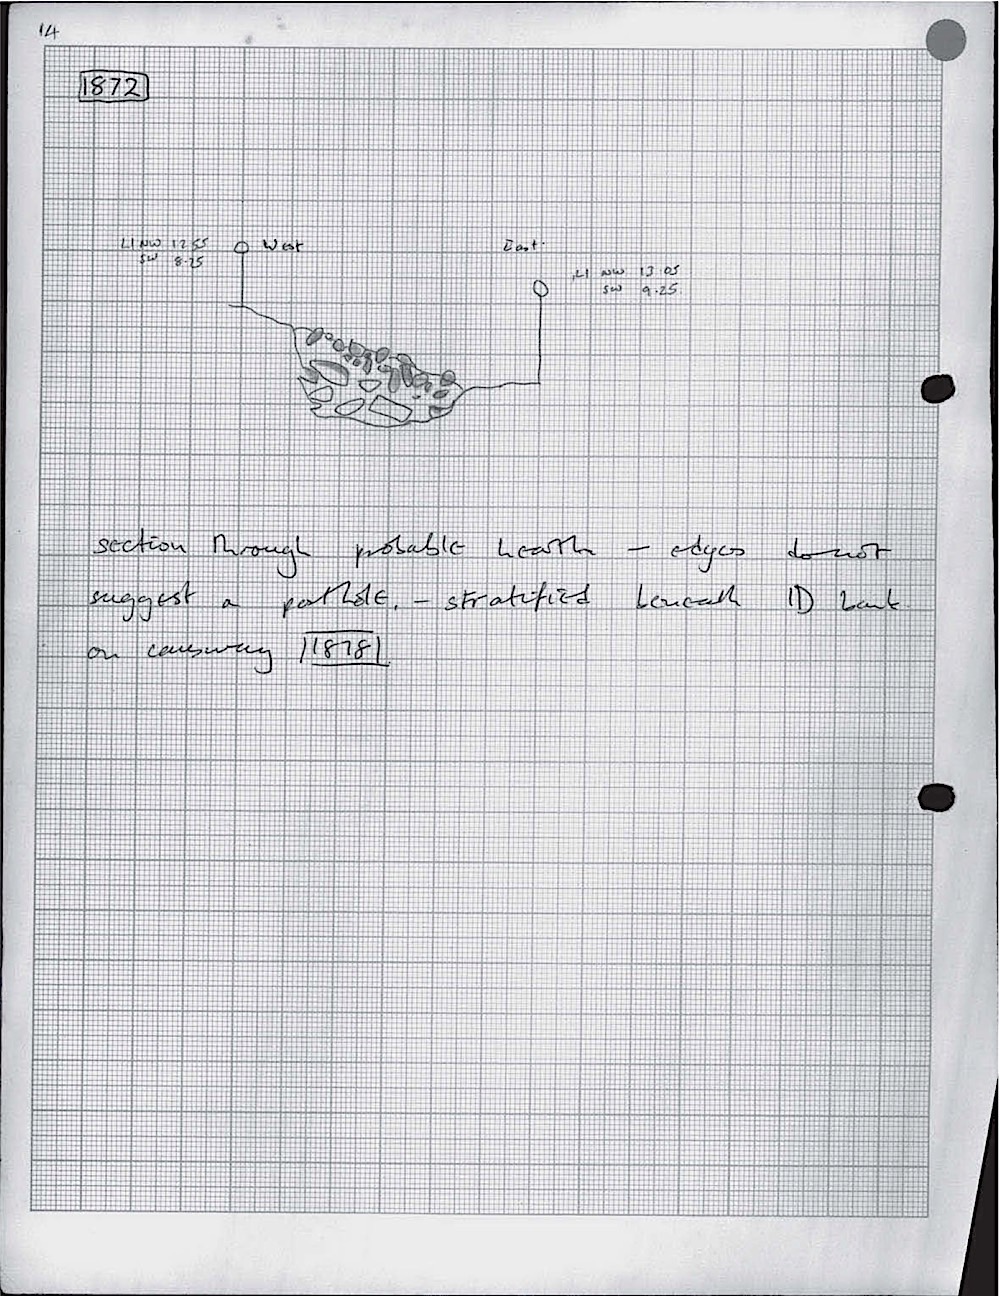 14
1872
L1 NW 12.55 West East
SW 8.25
L1 NW 13.05
SW 9.25
section through probable hearth – edges do not
suggest a posthole. – stratified beneath ID bank
on causeway 1878